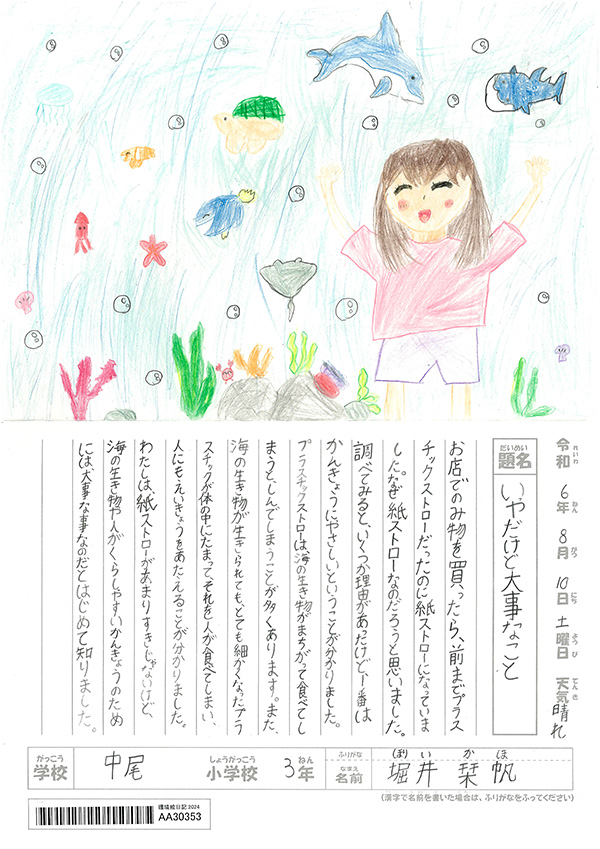 令和6年8月10日土曜日 天気晴れ
れいわ ねん がつ にち ようび てんき
だいめい
題名 いやだけど大事なこと
お店でのみ物を買ったら、前までプラス
チックストローだったのに紙ストローになっていま
した。なぜ紙ストローなのだろうと思いました。
調べてみると、いくつか理由があったけど一番は
かんきょうにやさしいということが分かりました。
プラスチックストローは、海の生き物がまちがって食べてし
まうと、しんでしまうことが多くあります。また、
海の生き物が生きられても、とても細かくなったプラ
スチックが体の中にたまって、それを人が食べてしまい、
人にもえいきょうをあたえることが分かりました。
わたしは、紙ストローがあまりすきじゃないけど、
海の生き物や人がくらしやすいかんきょうのため
には、大事な事なのだとはじめて知りました。
がっこう
学校 中尾
しょうがっこう
小学校
ねん
3年
ふりがな ほり い か ほ
なまえ
名前 堀井 栞帆
(漢字で名前を書いた場合は、ふりがなをふってください)
環境絵日記 2024
AA30353